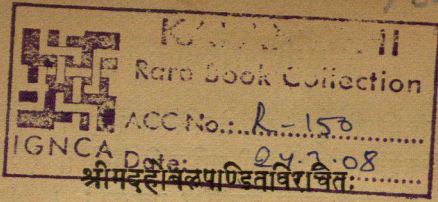 Rare Book Collection
ACC No.: R-150
IGNCA Date: 24.3.08
श्रीमदहोबलपण्डितविरचितः